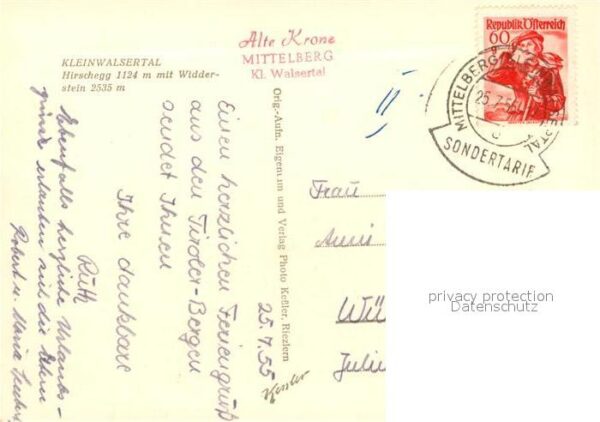 KLEINWALSERTAL
Hirschegg 1124 m mit Widder-
stein 2535 m
Alte Krone
MITTELBERG
Kl. Walsertal
Republik Österreich
60
MITTELBERG
25.7.55
SONDERTARIF
Orig.-Aufn. Eigentum und Verlag Photo Keßler, Riezlern
Keßler
25.7.55
Einen herzlichen Feriengruß
aus den Tiroler-Bergen
sendet Ihnen
Ihre dankbare
Ruth
Ebenfalls herzliche Urlaubs-
grüsse erlauben sich die Eltern
Robert u. Maria
Frau
Anni
Wü
Julie
privacy protection
Datenschutz